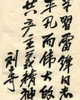 学習雷鋒同志
平凡而伟大的
共产主义精神
刘少奇